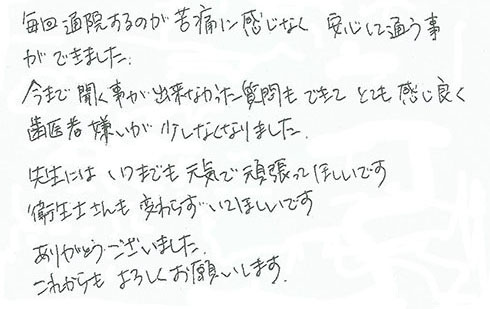 毎回通院するのが苦痛に感じなく 安心して通う事
ができました.
今まで聞く事が出来なかった質問も できて とても 感じ良く
歯医者嫌いが 少しなくなりました.
先生には いつまでも 元気で頑張って ほしいです
衛生士さんも 変わらずいてほしいです
ありがとうございました.
これからも よろしくお願いします.